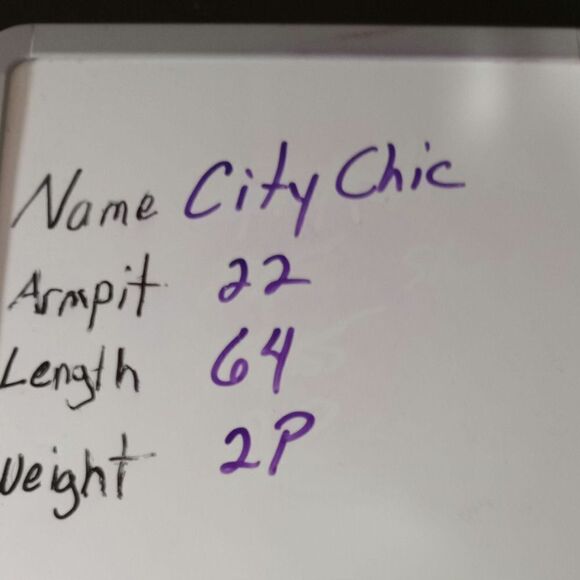 Name City Chic
Armpit 22
Length 64
Weight 2P